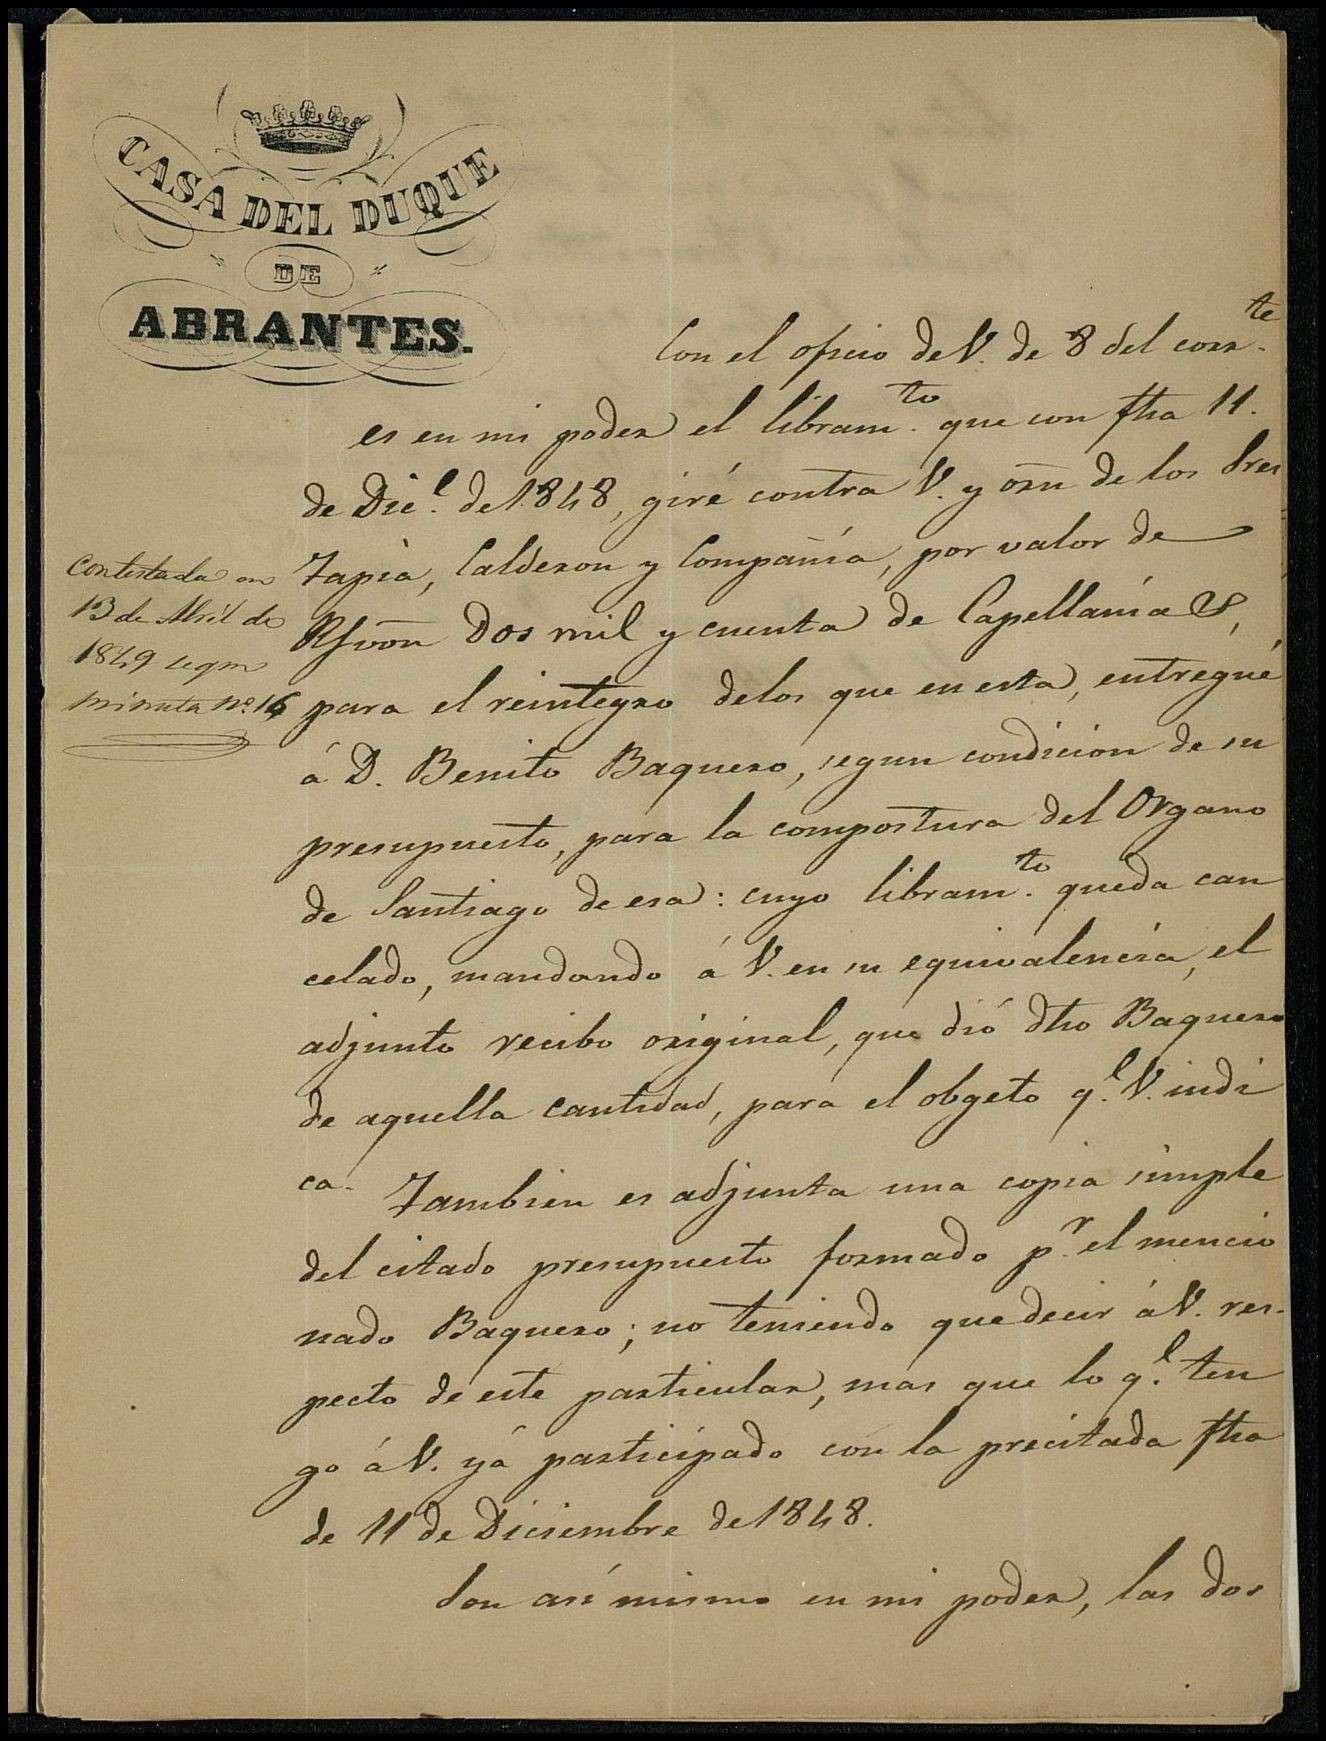 CASA DEL DUQUE
DE
ABRANTES.
Con el oficio de V. de 8 del corr.te
es en mi poder el libram.to que con fha 11.
de Dic.e de 1848, giré contra V. y orn de los Sres
Tapia, Calderon y Compañía, por valor de
Rs von Dos mil y cuenta de Capellanía &,
para el reintegro delos que en esta, entregué
á D. Benito Baquero, segun condicion de su
presupuesto, para la compostura del Organo
de Santiago de esa: cuyo libram.to queda can
celado, mandando á V. en su equivalencia, el
adjunto recibo original, que dió dho Baquero
de aquella cantidad, para el obgeto q.e V. indi
ca. Tambien es adjunta una copia simple
del citado presupuesto formado p.r el mencio
nado Baquero; no teniendo que decir á V. res-
pecto de este particular, mas que lo q.e ten
go á V. yá participado con la precitada fha
de 11 de Diciembre de 1848.
Son asi mismo en mi poder, las dos
Contestada en
13 de Abril de
1849 segn
minuta nº. 16